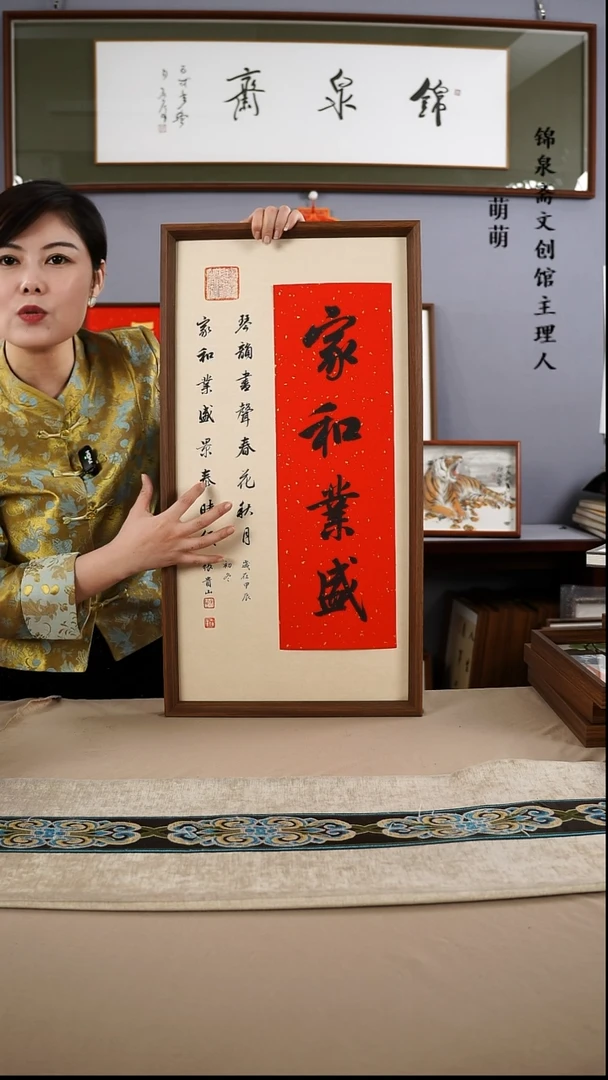 錦泉齋
锦泉斋文创馆主理人
萌萌
家和業盛
琴韻書聲春花秋月
歲在甲辰
初冬
家和業盛景
貴山